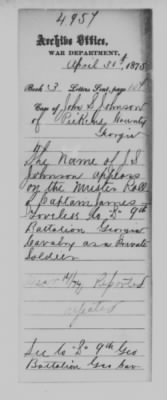 4957
Archive Office,
WAR DEPARTMENT,
April 30th, 1875
Book 3. Letters Sent, page 104
Case of John S. Johnson
of Pickens County
Georgia
The Name of J.S.
Johnson appears
on the Muster Roll
of Captain James
Loveless Co "D" 9th
Battalion Georgia
Cavalry as a Private
Soldier
Reported
See Co "D" 9th Geo
Battalion Geo Cav